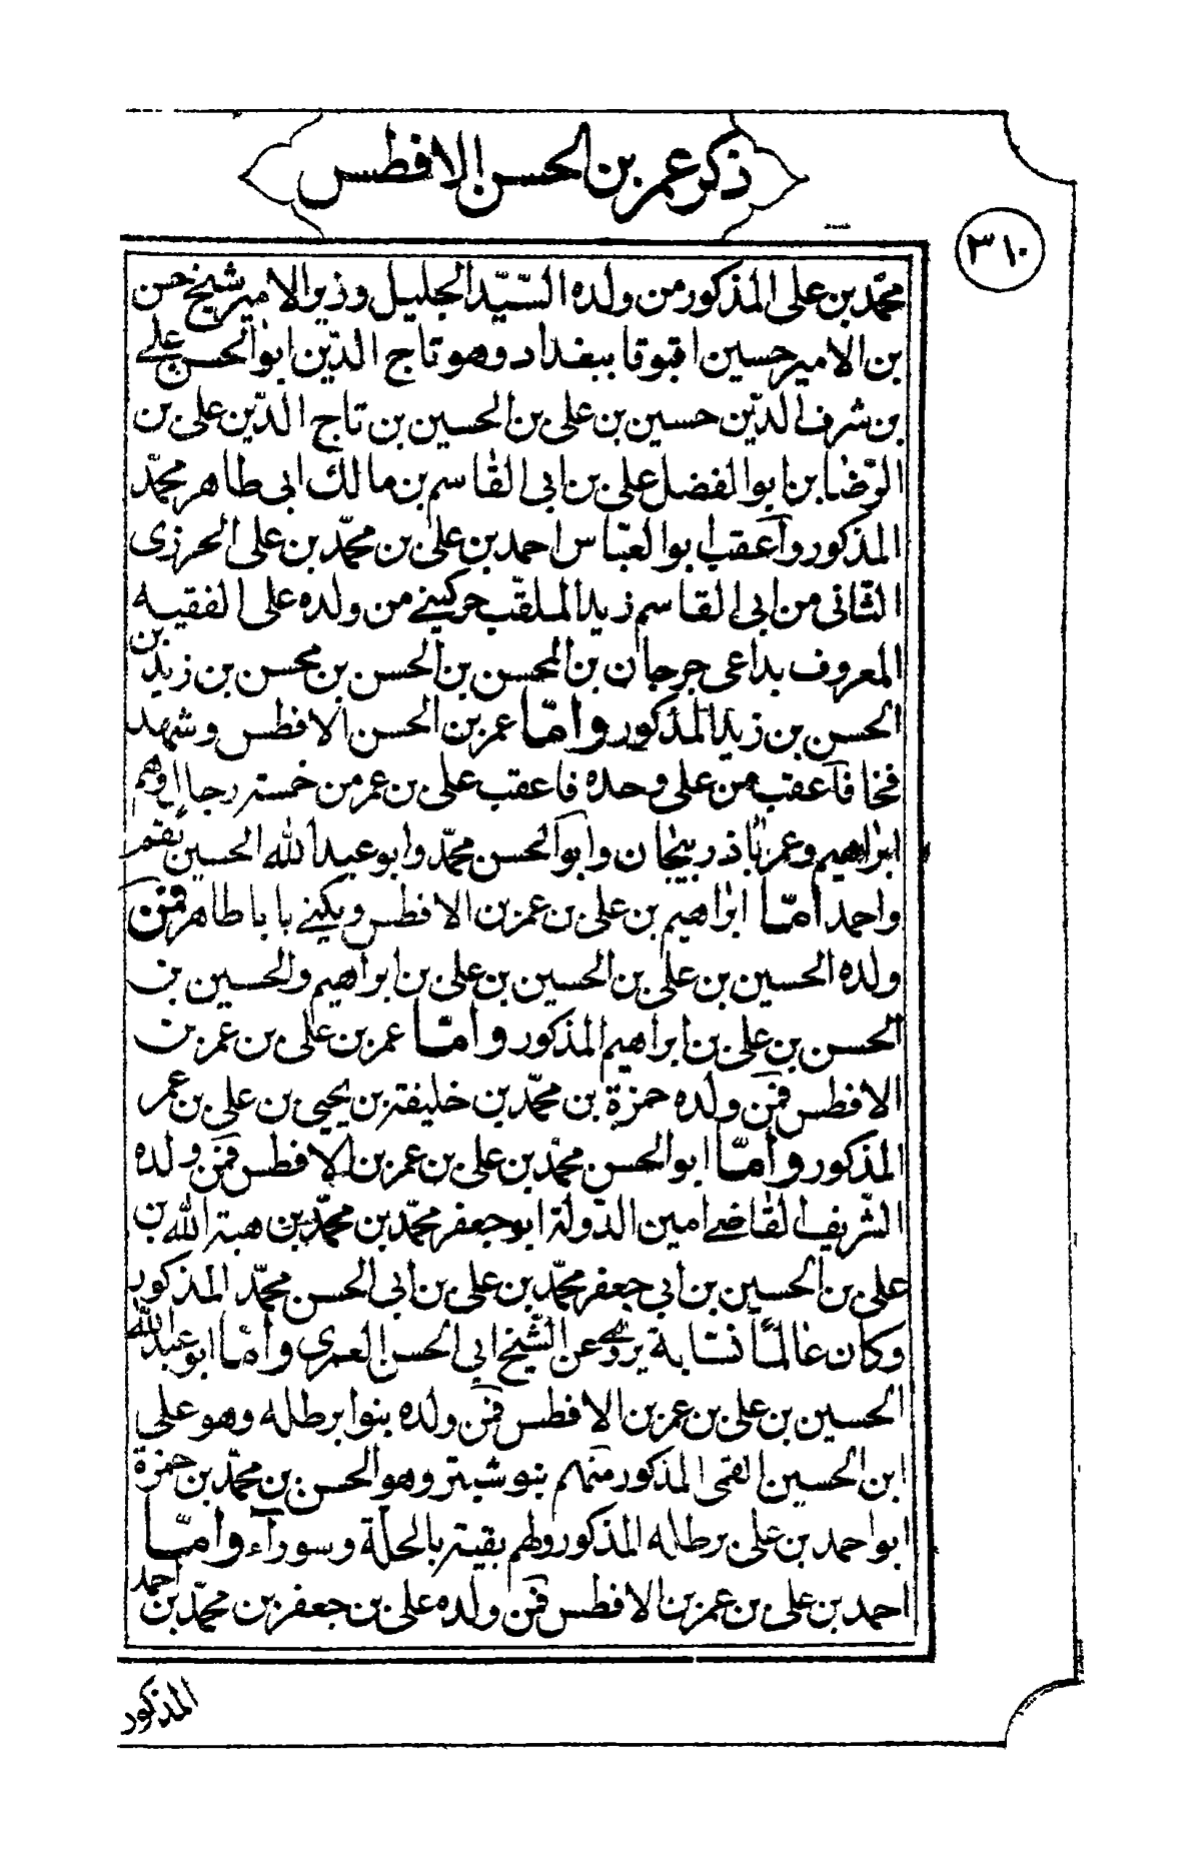 ذكر عمر بن الحسن الافطس
٣١٠
محمّد بن على المذكور من ولده السّيّد الجليل وزير الامير شيخ حسن
بن الامير حسين اقبوقا ببغداد وهو تاج الدّين ابوالحسن على
بن شرف الدّين حسين بن على بن الحسين بن تاج الدّين على بن
الرّضا بن ابو الفضل على بن ابى القاسم بن مالك ابى طاهر محمّد
المذكور وأعقب ابو العبّاس احمد بن على بن محمّد بن على الحرزى
الثّانى من ابى القاسم زيد الملقب جركينى من ولده على الفقيه
المعروف بداعى جرجان بن المحسن بن الحسن بن محسن بن زيد بن
الحسن بن زيد المذكور وامّا عمر بن الحسن الافطس وشهد
فخا فأعقب من على وحده فاعقب على بن عمر من خمسة رجال وهم
ابراهيم وعمر باذربيجان وابوالحسن محمّد وابو عبد الله الحسين بقم
واحمد امّا ابراهيم بن على بن عمر بن الافطس ويكنى بابا طاهر فمن
ولده الحسين بن على بن الحسين بن على بن ابراهيم والحسين بن
الحسن بن على بن ابراهيم المذكور وامّا عمر بن على بن عمر بن
الافطس فمن ولده حمزة بن محمّد بن خليفة بن يحيى بن على بن عمر
المذكور وامّا ابو الحسن محمّد بن على بن عمر بن الافطس فمن ولده
الشّريف القاضى امين الدّولة ابو جعفر محمّد بن محمّد بن هبة الله بن
على بن الحسين بن ابى جعفر محمّد بن على بن ابى الحسن محمّد المذكور
وكان عالمًا نسّابة يروى عن الشّيخ ابى الحسن العمرى وامّا ابو عبد الله
الحسين بن على بن عمر بن الافطس فمن ولده بنوا برطله وهو على
ابن الحسين القمى المذكور منهم بنو شبتر وهو الحسن بن محمّد بن حمزة
ابو احمد بن على برطله المذكور ولهم بقية بالحلّة وسورآء وامّا
احمد بن على بن عمر بن الافطس فمن ولده على بن جعفر بن محمّد بن احمد
المذكور